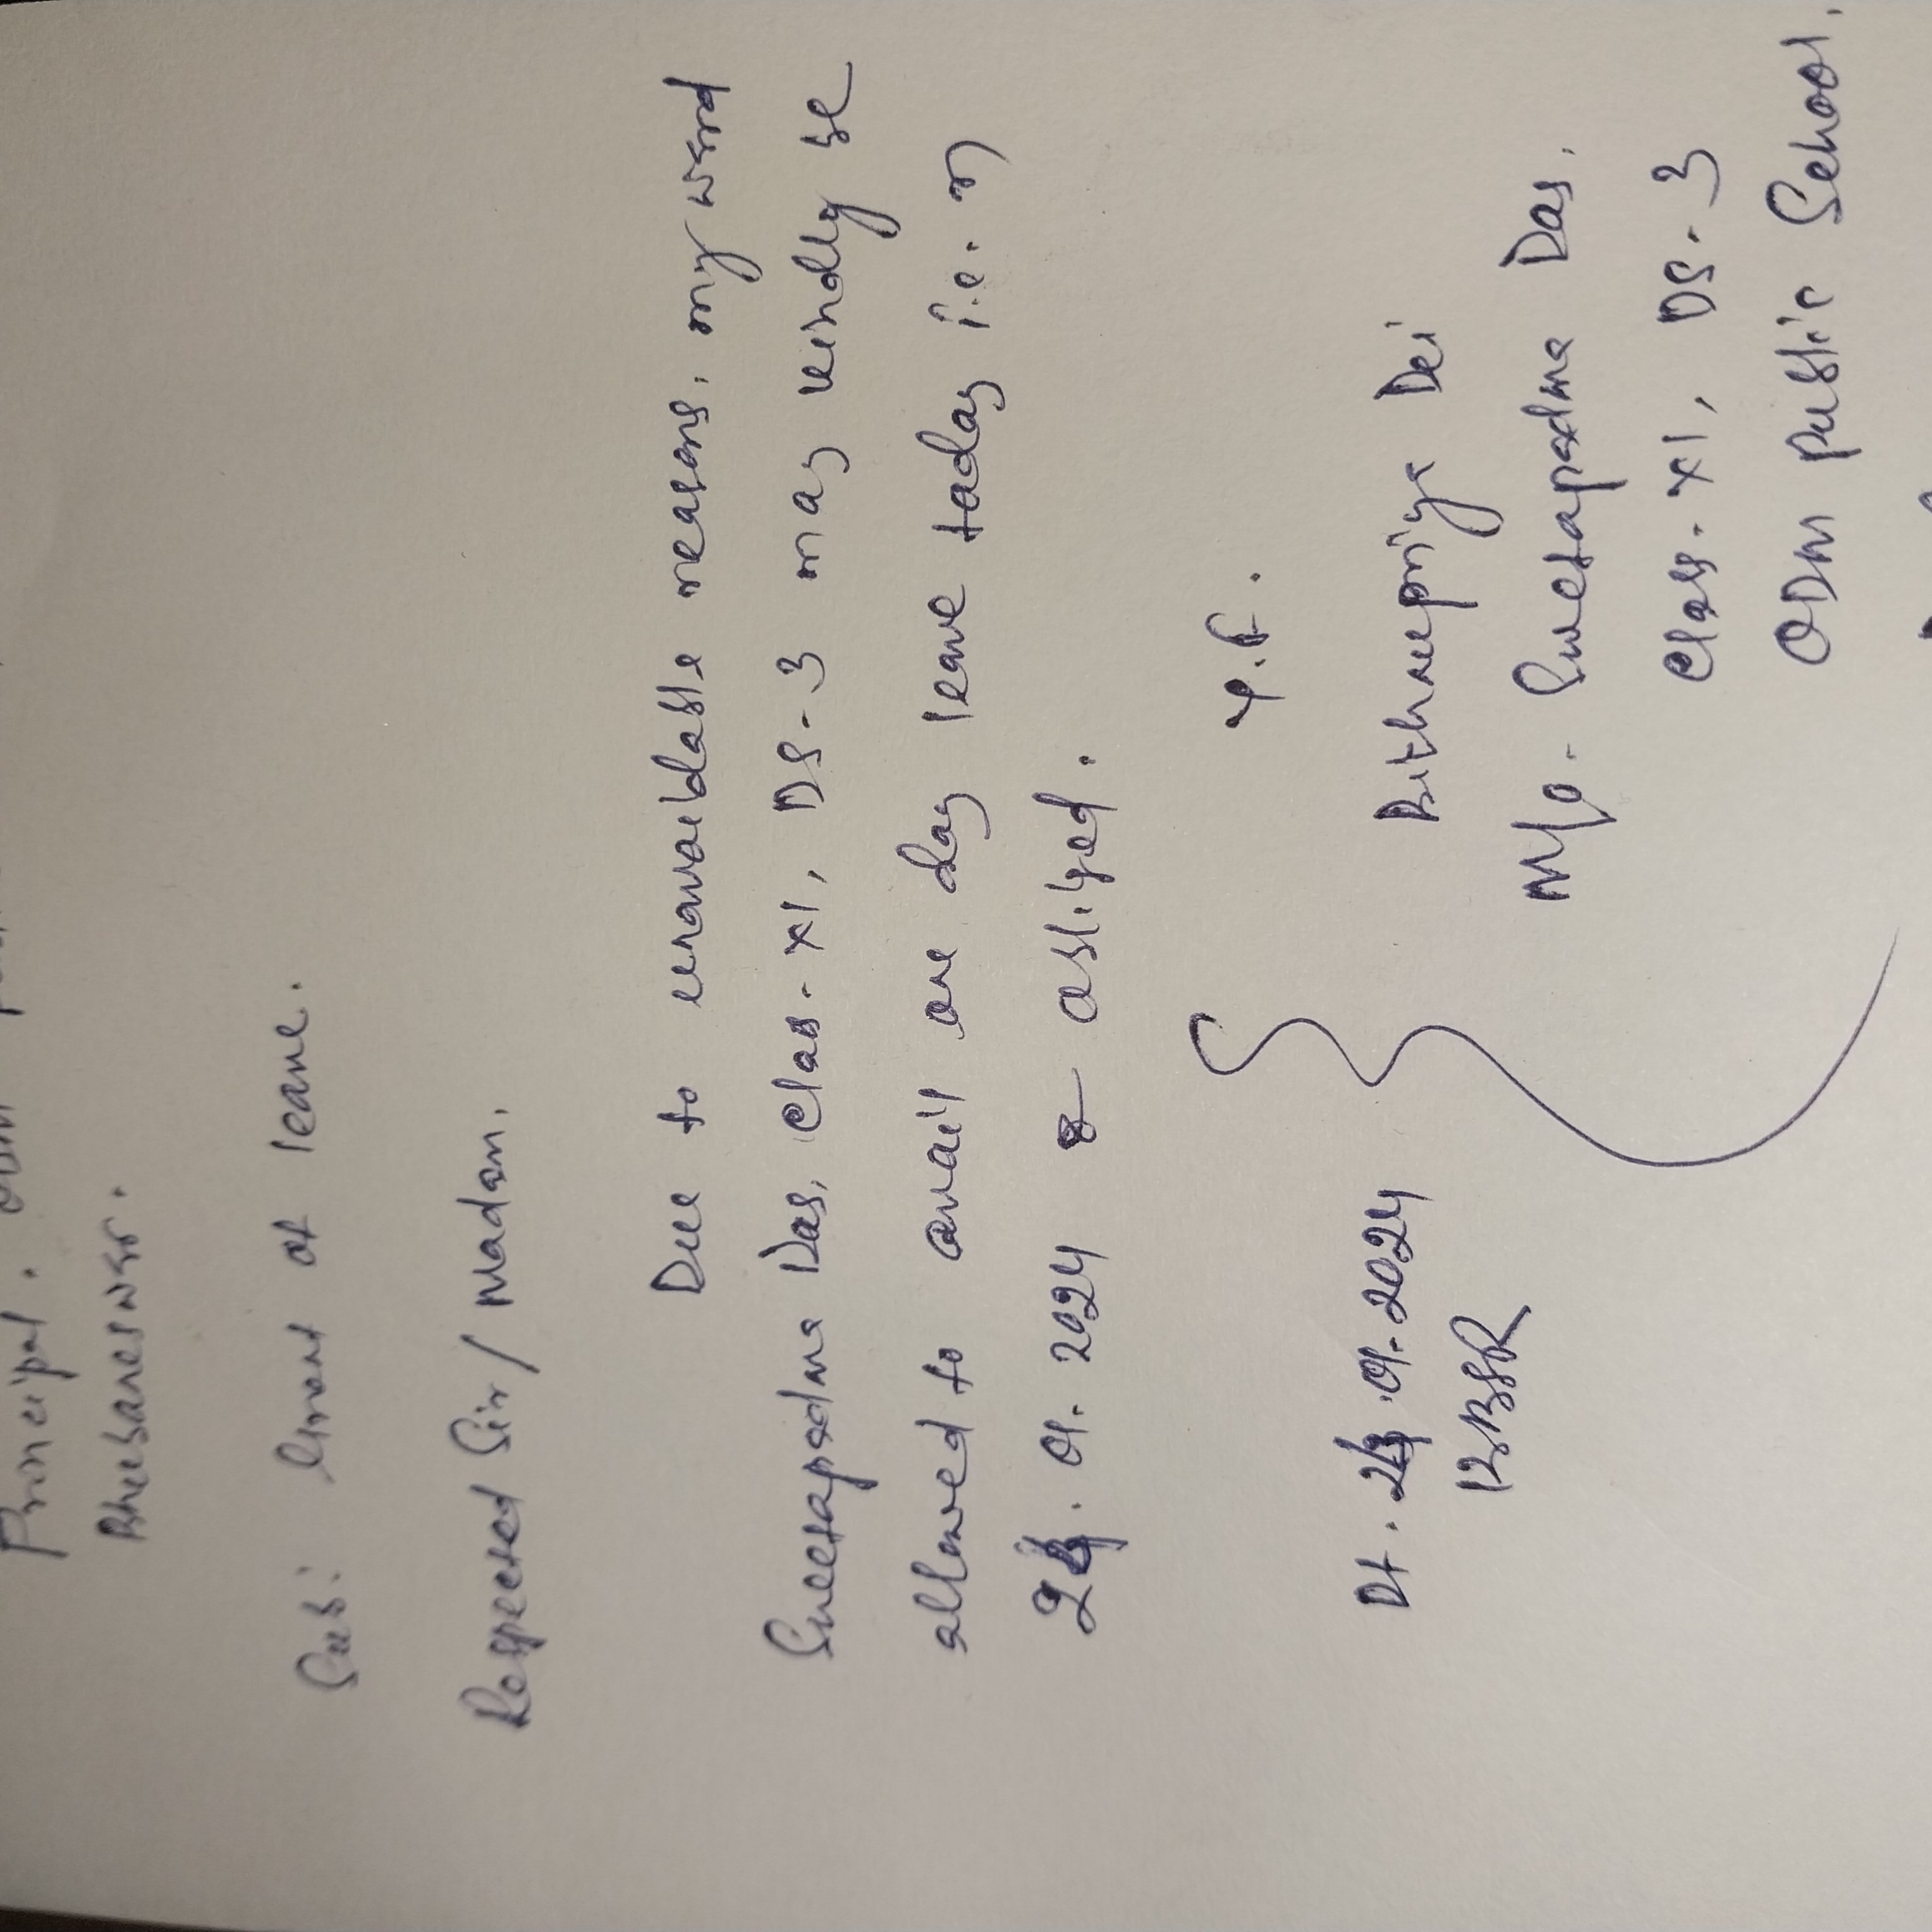 Principal, ODM
Bhubaneswar.
Sub: Grant of leave.
Respected Sir/Madam,
Due to unavoidable reasons, my ward
Suetapadma Das, Class-XI, DS-3 may kindly be
allowed to avail one day leave today i.e. on
24.01.2024 & obliged.
Y.F.
Dt. 24.01.2024
BBSR
Bithneupriya Dei
M/o - Suetapadma Das.
Class-XI, DS-3
ODM Public School.